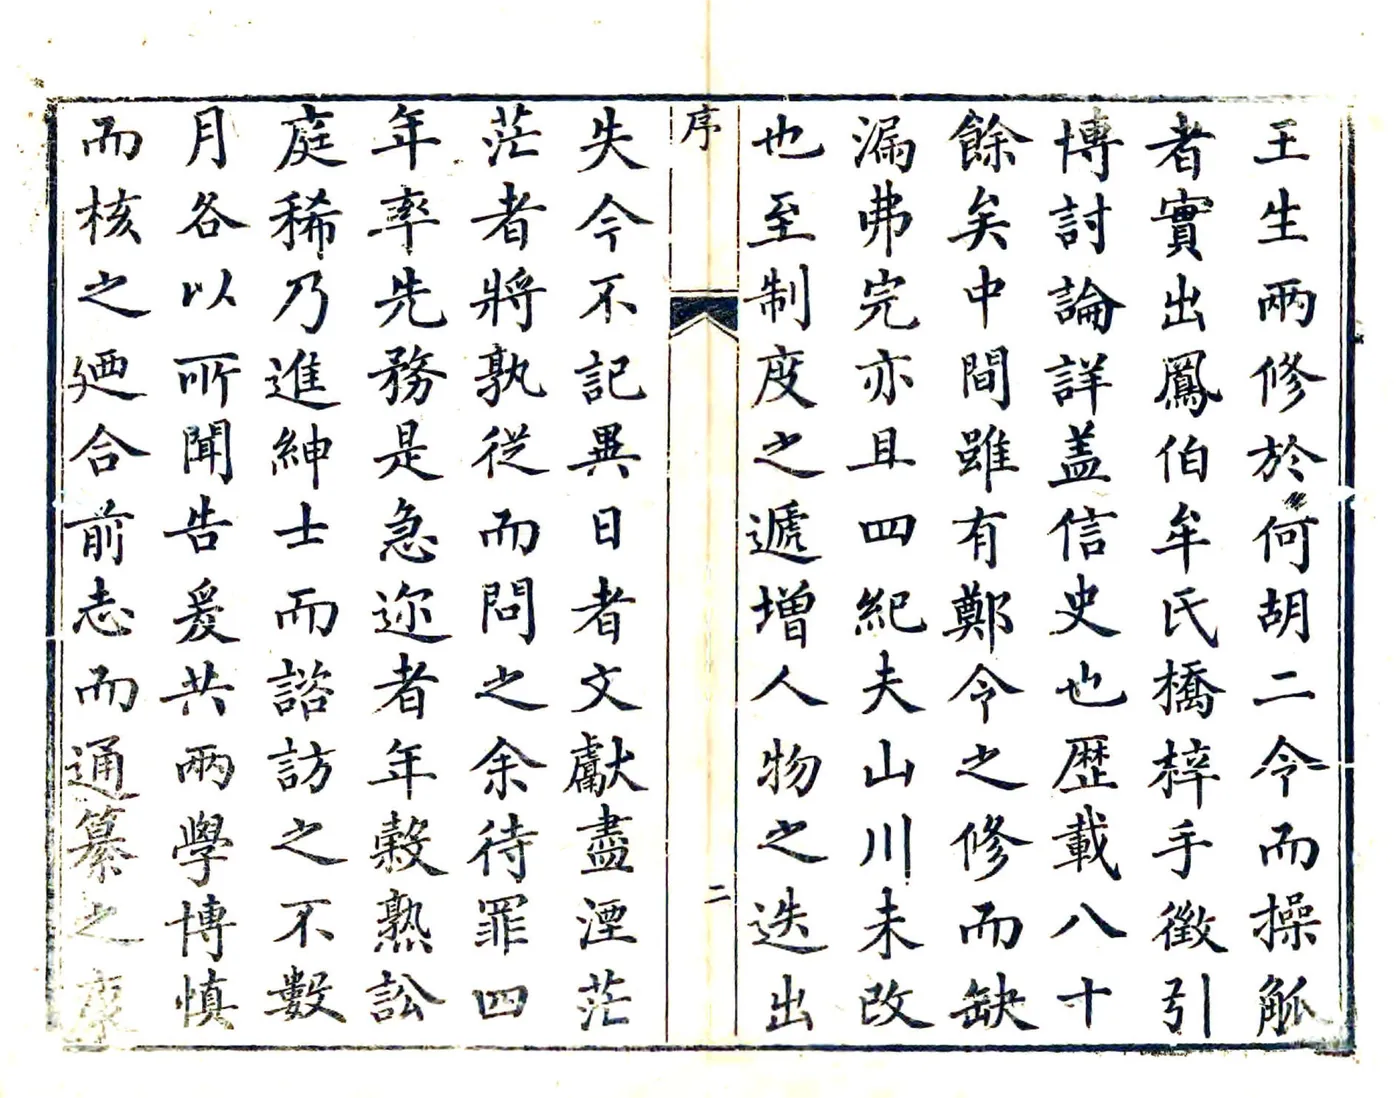 王生兩修於何胡二令而操觚
者實出鳳伯牟氏橋梓手徵引
博討論詳盖信史也歴載八十
餘矣中間雖有鄭令之修而缺
漏弗完亦且四紀夫山川未改
也至制度之遞增人物之迭出
序
二
失今不記異日者文獻盡湮茫
茫者將孰從而問之余待罪四
年率先務是急迩者年穀熟訟
庭稀乃進紳士而諮訪之不數
月各以所聞告爰共兩學博慎
而核之廼合前志而通纂之稟